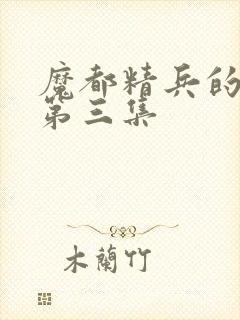 魔都精兵的
第三集
木蘭竹